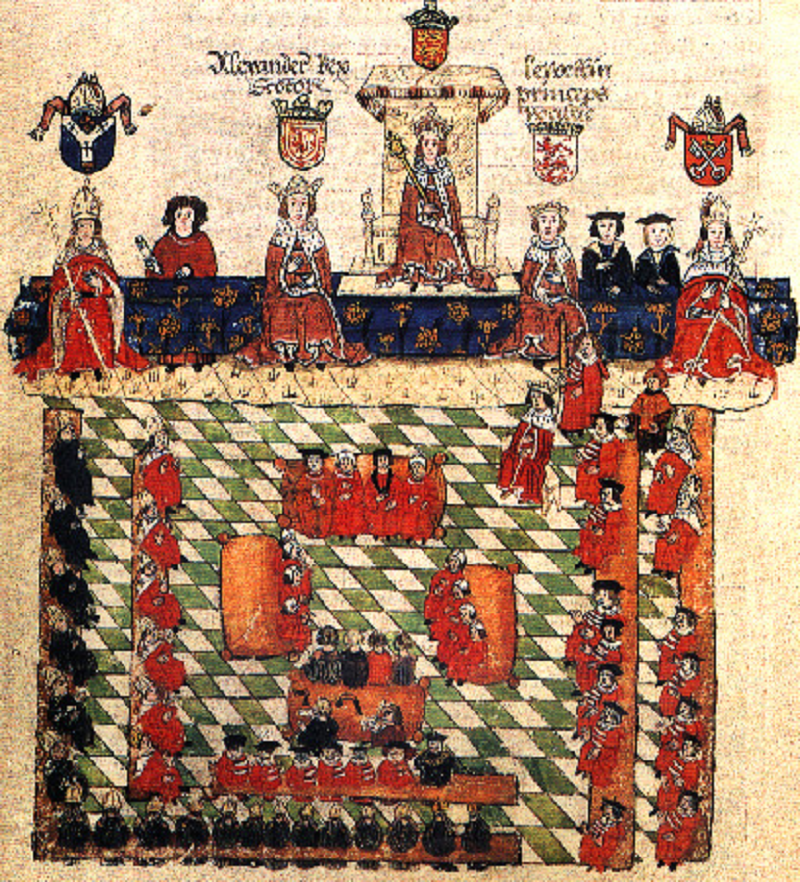 Alexander Rex
Scotor
lewellin
princeps